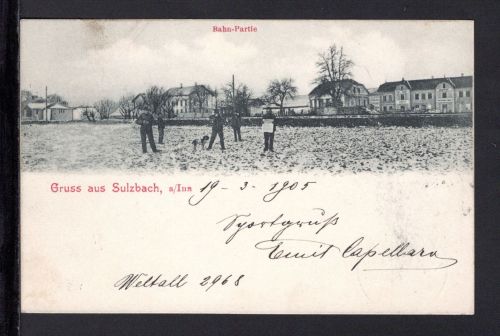 Bahn-Partie
Gruss aus Sulzbach, a/Inn 19 - 3 - 1905
Sportgruß
Emil Capellaro
Weltall 2968